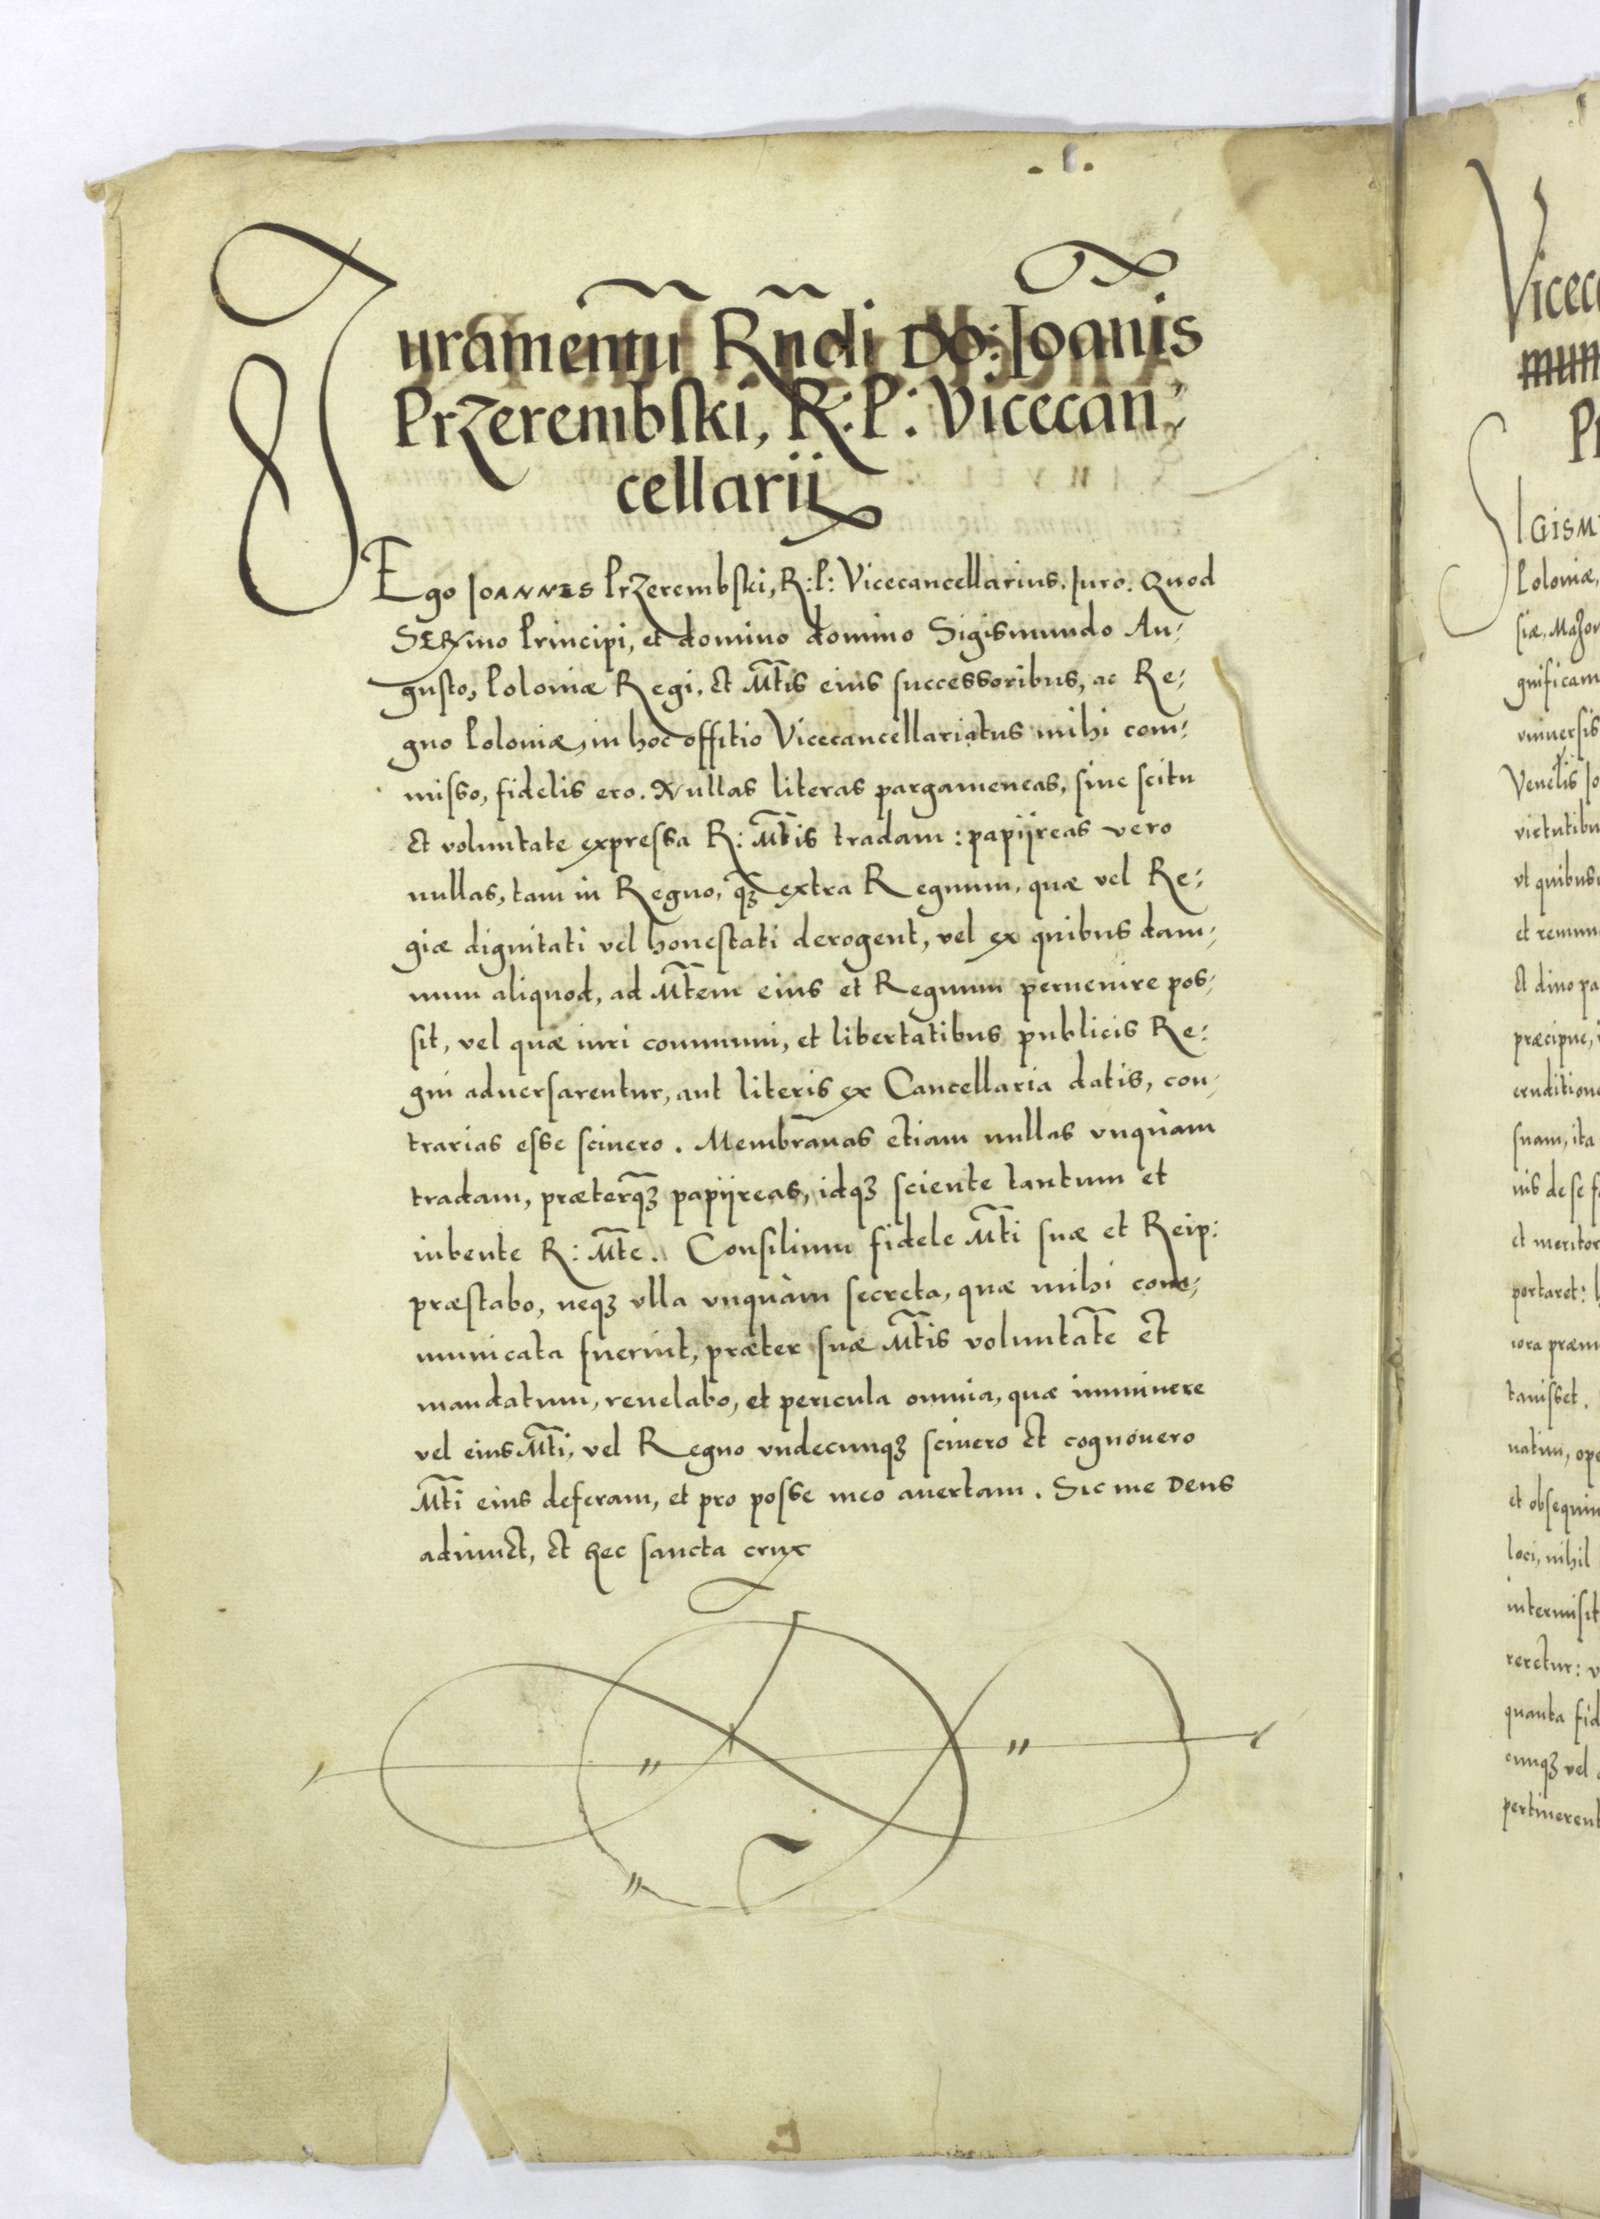 .1.
Juramentū Rn̄di Do: Joānis
Przerembski, R: P: Vicecan:
cellarij
Ego JOANNES Przerembski, R: P: Vicecancellarius. Juro. Quod
SERmo Principi, et domino domino Sigismundo Au:
gusto, Poloniæ Regi, et Mt̄is eius successoribus, ac Re:
gno Poloniæ, in hoc offitio Vicecancellariatus mihi com:
misso, fidelis ero. Nullas literas pargameneas, sine scitu
et voluntate expressa R: Mt̄is tradam: papijreas vero
nullas, tam in Regno, q̄ꝫ extra Regnum, quæ vel Re:
giæ dignitati vel honestati derogent, vel ex quibus dam:
num aliquod, ad Mt̄em eius et Regnum peruenire pos:
sit, vel quæ iuri communi, et libertatibus publicis Re:
gni aduersarentur, aut literis ex Cancellaria datis, con:
trarias esse sciuero. Membranas etiam nullas vnquàm
tradam, præterq̄ꝫ papijreas, idqꝫ sciente tantum et
iubente R: Mt̄e. Consilium fidele Mt̄i suæ et Reip:
præstabo, neqꝫ vlla vnquàm secreta, quæ mihi com:
municata fuerint, præter suæ Mt̄is voluntat̄e et
mandatum, reuelabo, et pericula omnia, quæ imminere
vel eius Mt̄i, vel Regno vndecunqꝫ sciuero et cognouero
Mt̄i eius deferam, et pro posse meo auertam. Sic me Deus
adiuuet, et hec sancta crux
Vicec
mun
Pr
SIGISM
Poloniæ,
siæ, Mazou
gnificam
vniuersis
Venelis Jo
virtutibu
vt quibus
et remun
et diuo pa
præcipue,
eruditione
suam, ita
nis de se f
et meritor
portaret:
iora præm
tauisset.
natim, ope
et obsequiu
loci, nihil
intermisit
reretur: v
quanta fid
cunqꝫ vel
pertinerent